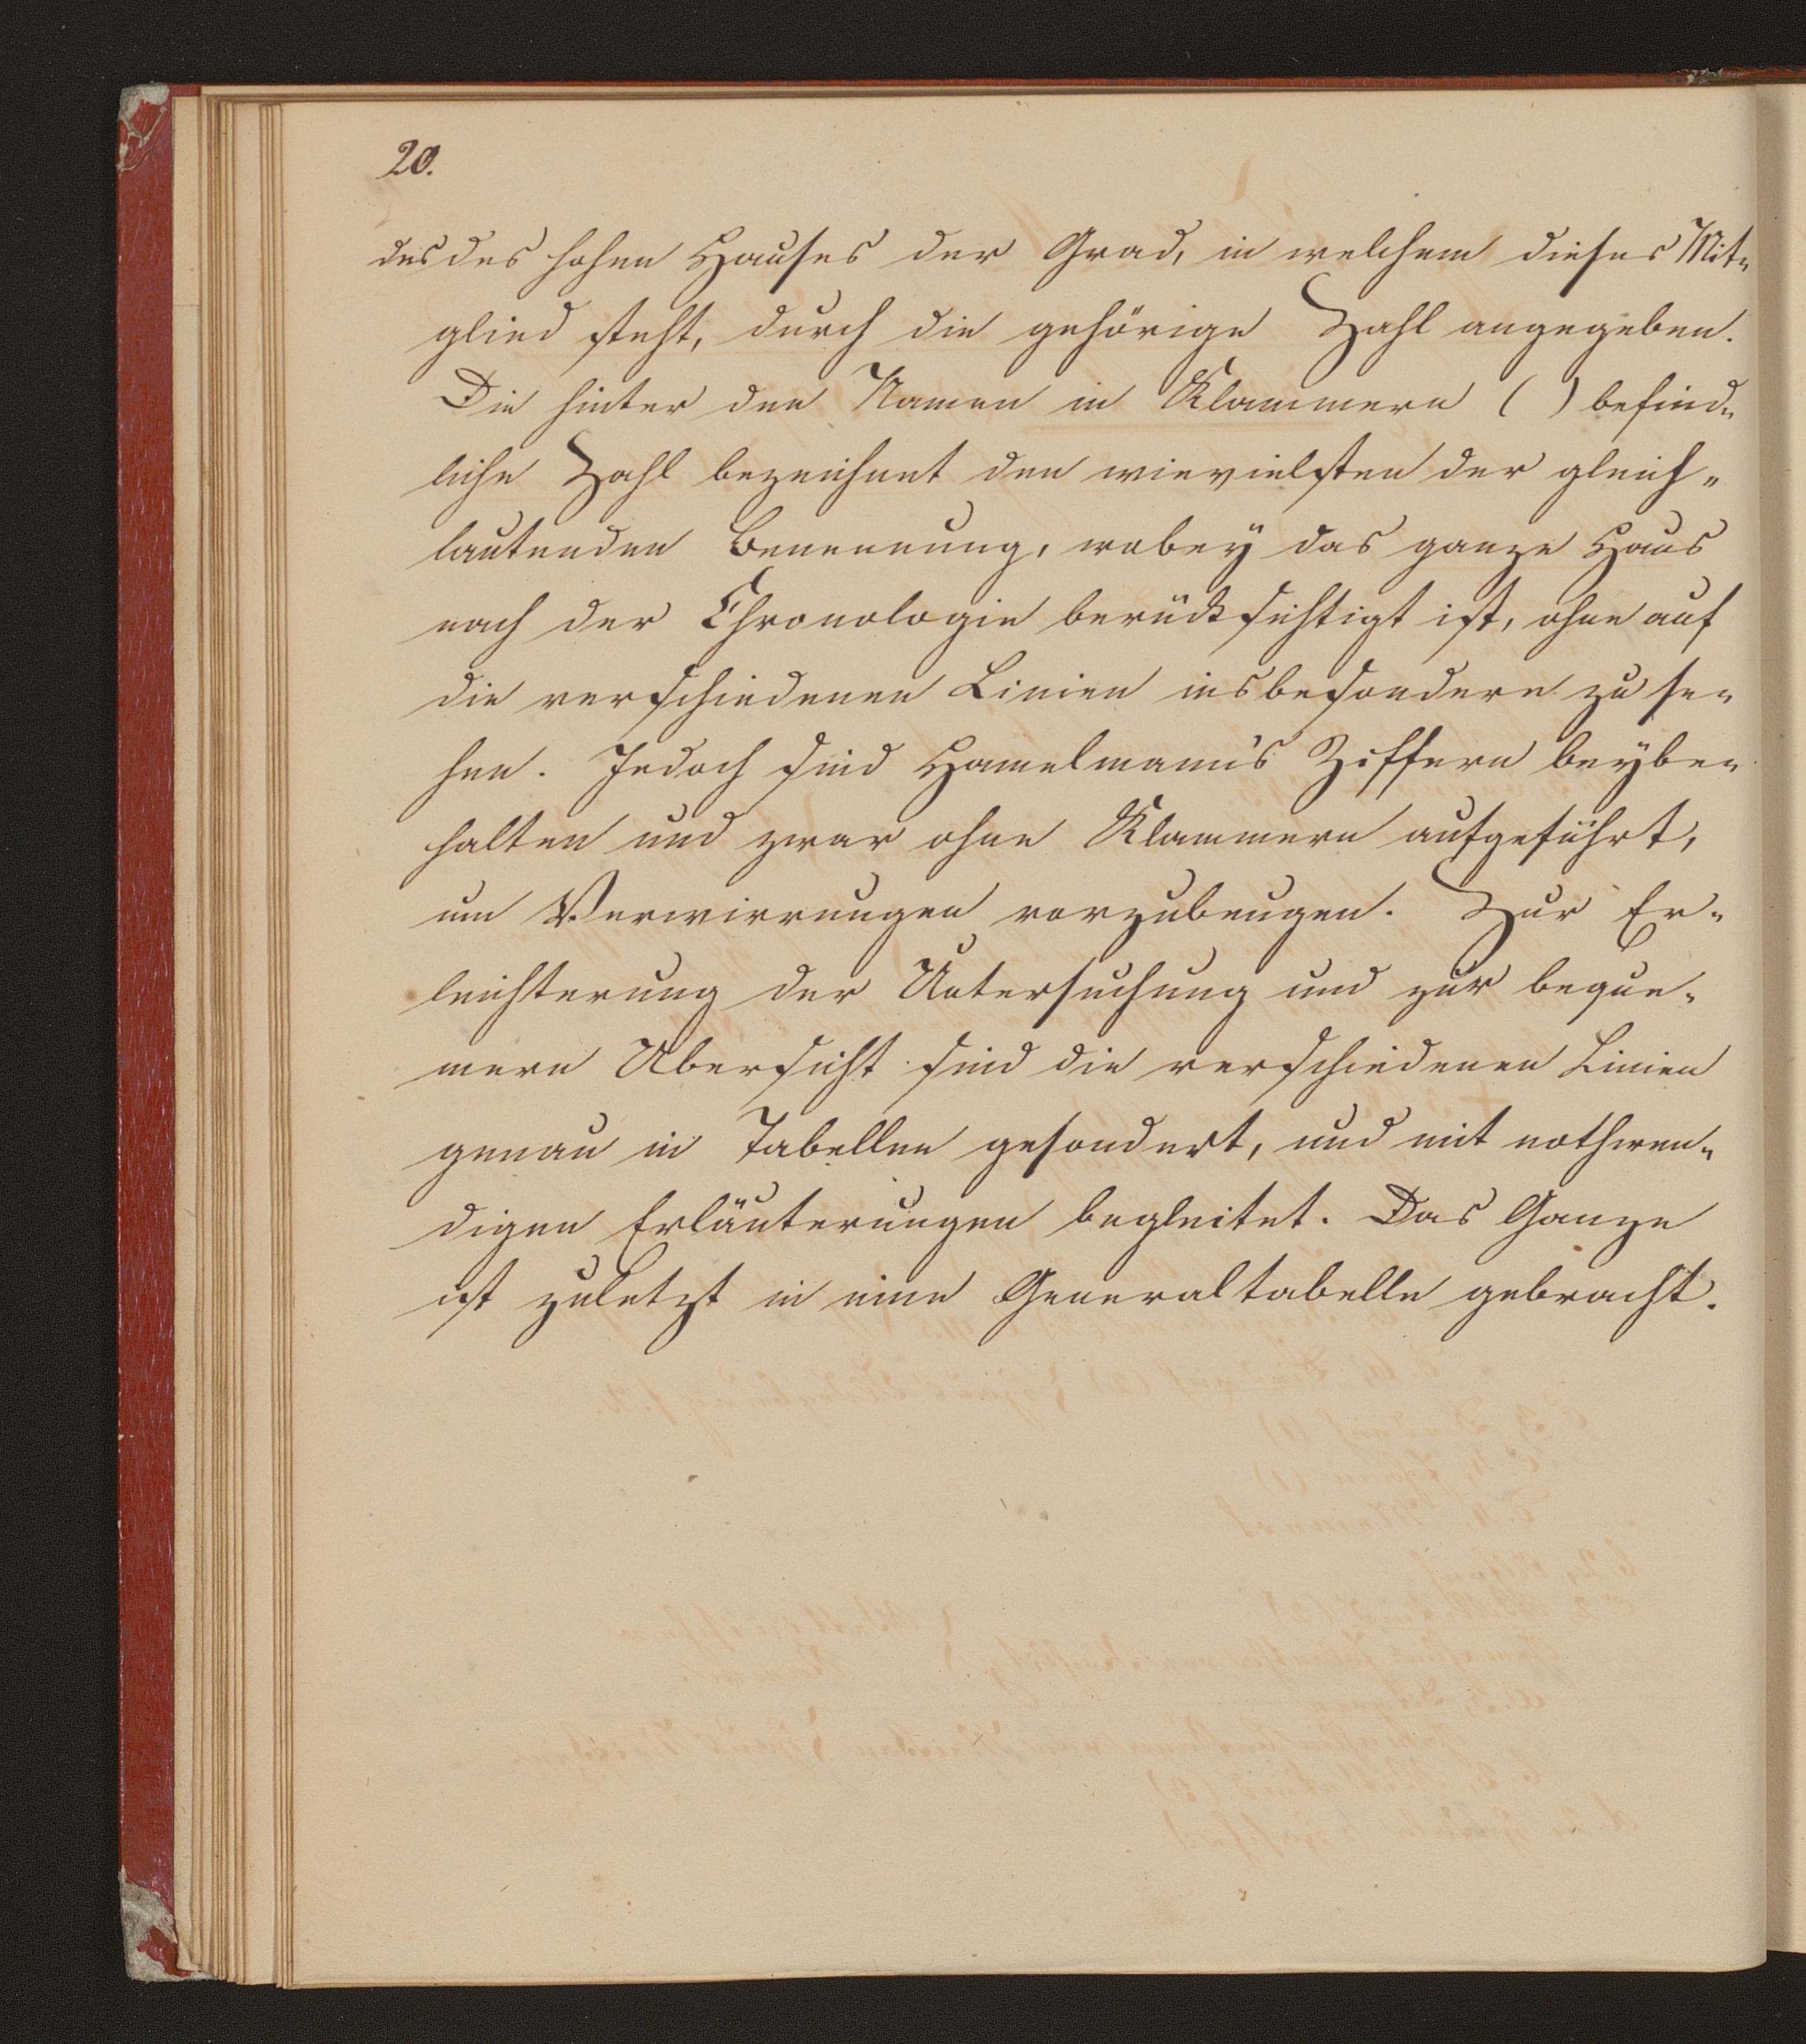 20.
des des hohen Hauses der Grad, in welchem dieses Mit„
glied steht, durch die gehörige Zahl angegeben.
Die hinter den Namen in Klammern ( ) befind„
liche Zahl bezeichnet den wievielsten der gleich„
lautenden Benennung, wobey das ganze Haus
nach der Chronologie berücksichtigt ist, ohne auf
die verschiedenen Linien insbesondere zu se„
hen. Jedoch sind Hamelmann's Ziffern beybe„
halten und zwar ohne Klammern aufgeführt,
um Verwirrungen vorzubeugen. Zur Er„
leichterung der Untersuchung und zur beque„
mern Übersicht sind die verschiedenen Linien
genau in Tabellen gesondert, und mit nothwen„
digen Erläuterungen begleitet. Das Ganze
ist zuletzt in eine Generaltabelle gebracht.